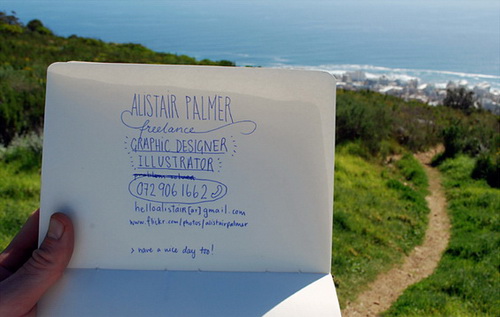 ALISTAIR PALMER
freelance
GRAPHIC DESIGNER
ILLUSTRATOR
problem solver
072 906 1662
helloalistair[at]gmail.com
www.flickr.com/photos/alistairpalmer
> have a nice day too!